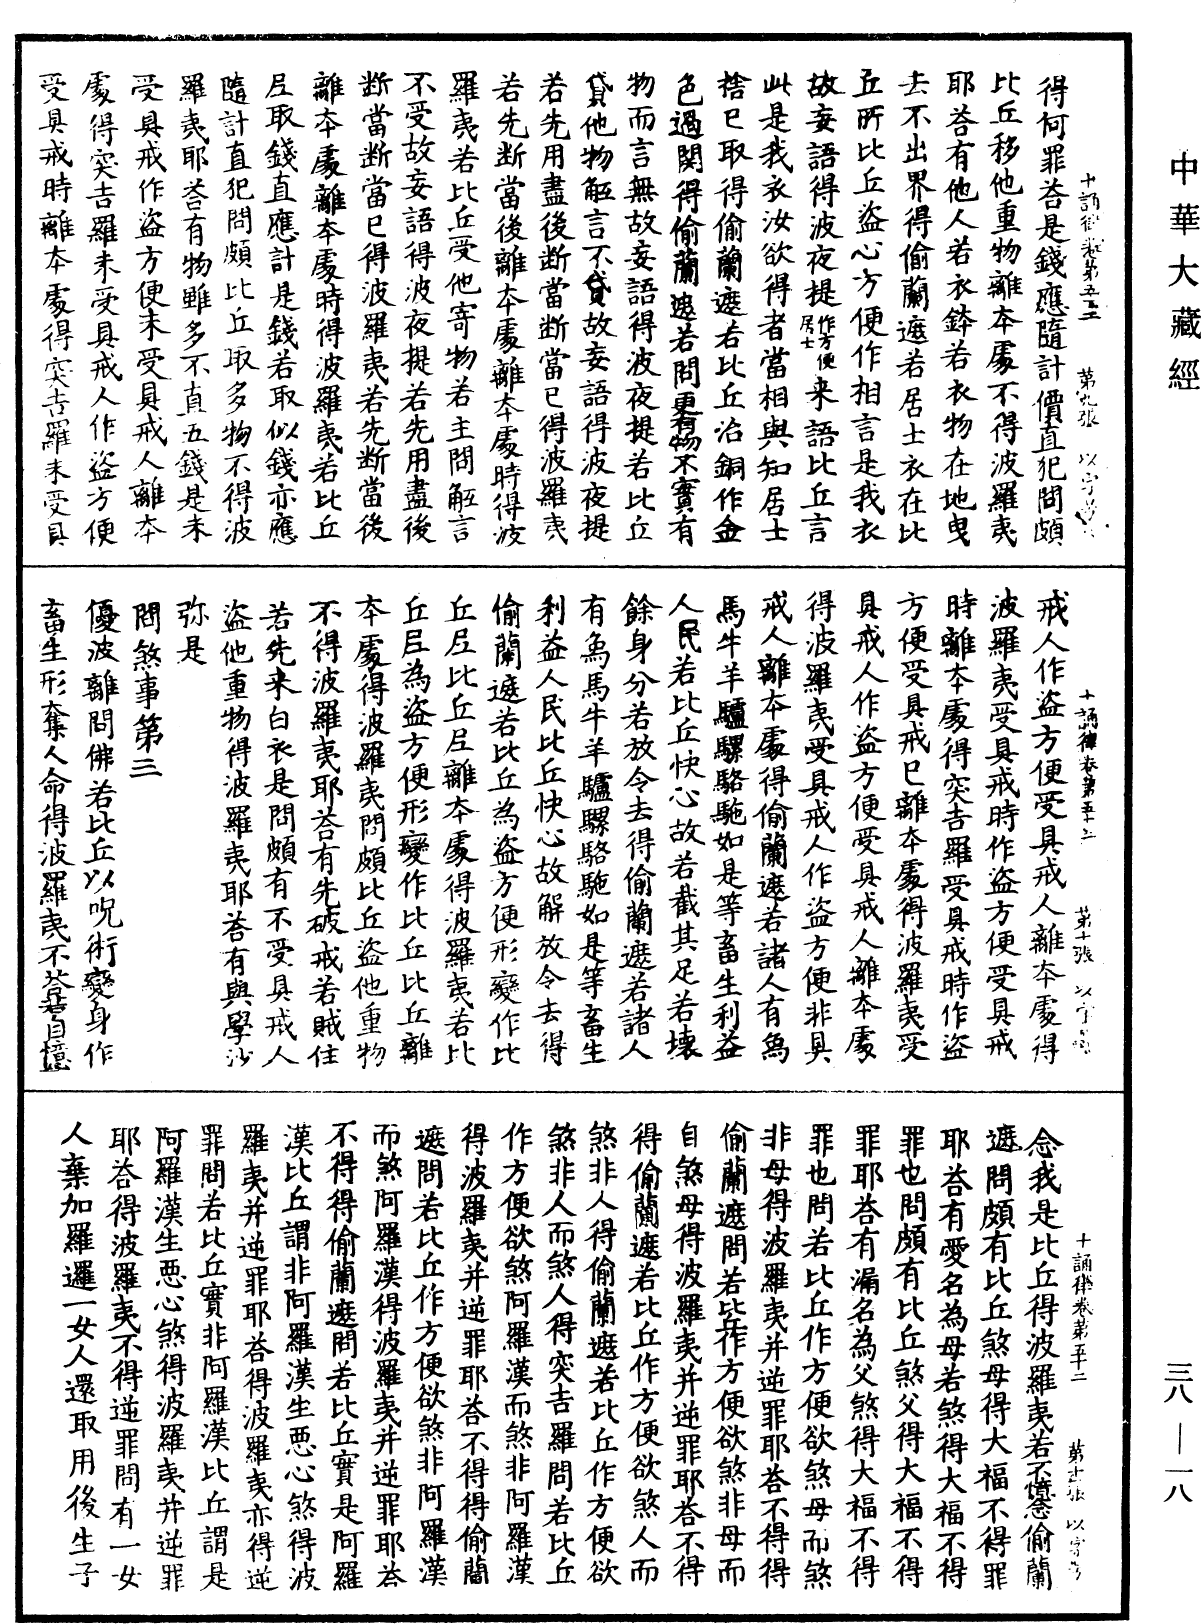 中華大藏經
十誦律卷第五十二 第九張 以字号
得何罪荅是錢應隨計價直犯問頗
比丘移他重物離本處不得波羅夷
耶荅有他人若衣鉢若衣物在地曳
去不出界得偷蘭遮若居士衣在比
丘所比丘盜心方便作相言是我衣
故妄語得波夜提居士作方便来語比丘言
此是我衣汝欲得者當相與知居士
捨已取得偷蘭遮若比丘冶銅作金
色過関得偷蘭遮若問更有物不實有
物而言無故妄語得波夜提若比丘
貸他物觝言不貸故妄語得波夜提
若先用盡後断當断當已得波羅夷
若先断當後離本處離本處時得波
羅夷若比丘受他寄物若主問觝言
不受故妄語得波夜提若先用盡後
断當断當已得波羅夷若先断當後
離本處離本處時得波羅夷若比丘
尼取錢直應計是錢若取似錢亦應
隨計直犯問頗比丘取多物不得波
羅夷耶荅有物雖多不直五錢是未
受具戒作盜方便未受具戒人離本
處得突吉羅未受具戒人作盜方便
受具戒時離本處得突吉羅未受具
十誦律卷第五十二 第十張 以字号
戒人作盜方便受具戒人離本處得
波羅夷受具戒時作盜方便受具戒
時離本處得突吉羅受具戒時作盜
方便受具戒已離本處得波羅夷受
具戒人作盜方便受具戒人離本處
得波羅夷受具戒人作盜方便非具
戒人離本處得偷蘭遮若諸人有烏
馬牛羊驢騾駱駞如是等畜生利益
人民若比丘快心故若截其足若壞
餘身分若放令去得偷蘭遮若諸人
有烏馬牛羊驢騾駱駞如是等畜生
利益人民比丘快心故解放令去得
偷蘭遮若比丘為盜方便形變作比
丘尼比丘尼離本處得波羅夷若比
丘尼為盜方便形變作比丘比丘離
本處得波羅夷問頗比丘盜他重物
不得波羅夷耶荅有先破戒若賊住
若先来白衣是問頗有不受具戒人
盜他重物得波羅夷耶荅有與學沙
弥是
問煞事第三
優波離問佛若比丘以呪術變身作
畜生形奪人命得波羅夷不荅若自憶
十誦律卷第五十二 第十一張 以字号
念我是比丘得波羅夷若不憶念偷蘭
遮問頗有比丘煞母得大福不得罪
耶荅有愛名為母若煞得大福不得
罪也問頗有比丘煞父得大福不得
罪耶荅有漏名為父煞得大福不得
罪也問若比丘作方便欲煞母而煞
非母得波羅夷并逆罪耶荅不得得
偷蘭遮問若比丘作方便欲煞非母而
自煞母得波羅夷并逆罪耶荅不得
得偷蘭遮若比丘作方便欲煞人而
煞非人得偷蘭遮若比丘作方便欲
煞非人而煞人得突吉羅問若比丘
作方便欲煞阿羅漢而煞非阿羅漢
得波羅夷并逆罪耶荅不得得偷蘭
遮問若比丘作方便欲煞非阿羅漢
而煞阿羅漢得波羅夷并逆罪耶荅
不得得偷蘭遮問若比丘實是阿羅
漢比丘謂非阿羅漢生惡心煞得波
羅夷并逆罪耶荅得波羅夷亦得逆
罪問若比丘實非阿羅漢比丘謂是
阿羅漢生惡心煞得波羅夷并逆罪
耶荅得波羅夷不得逆罪問有一女
人棄加羅邏一女人還取用後生子
三八—一八